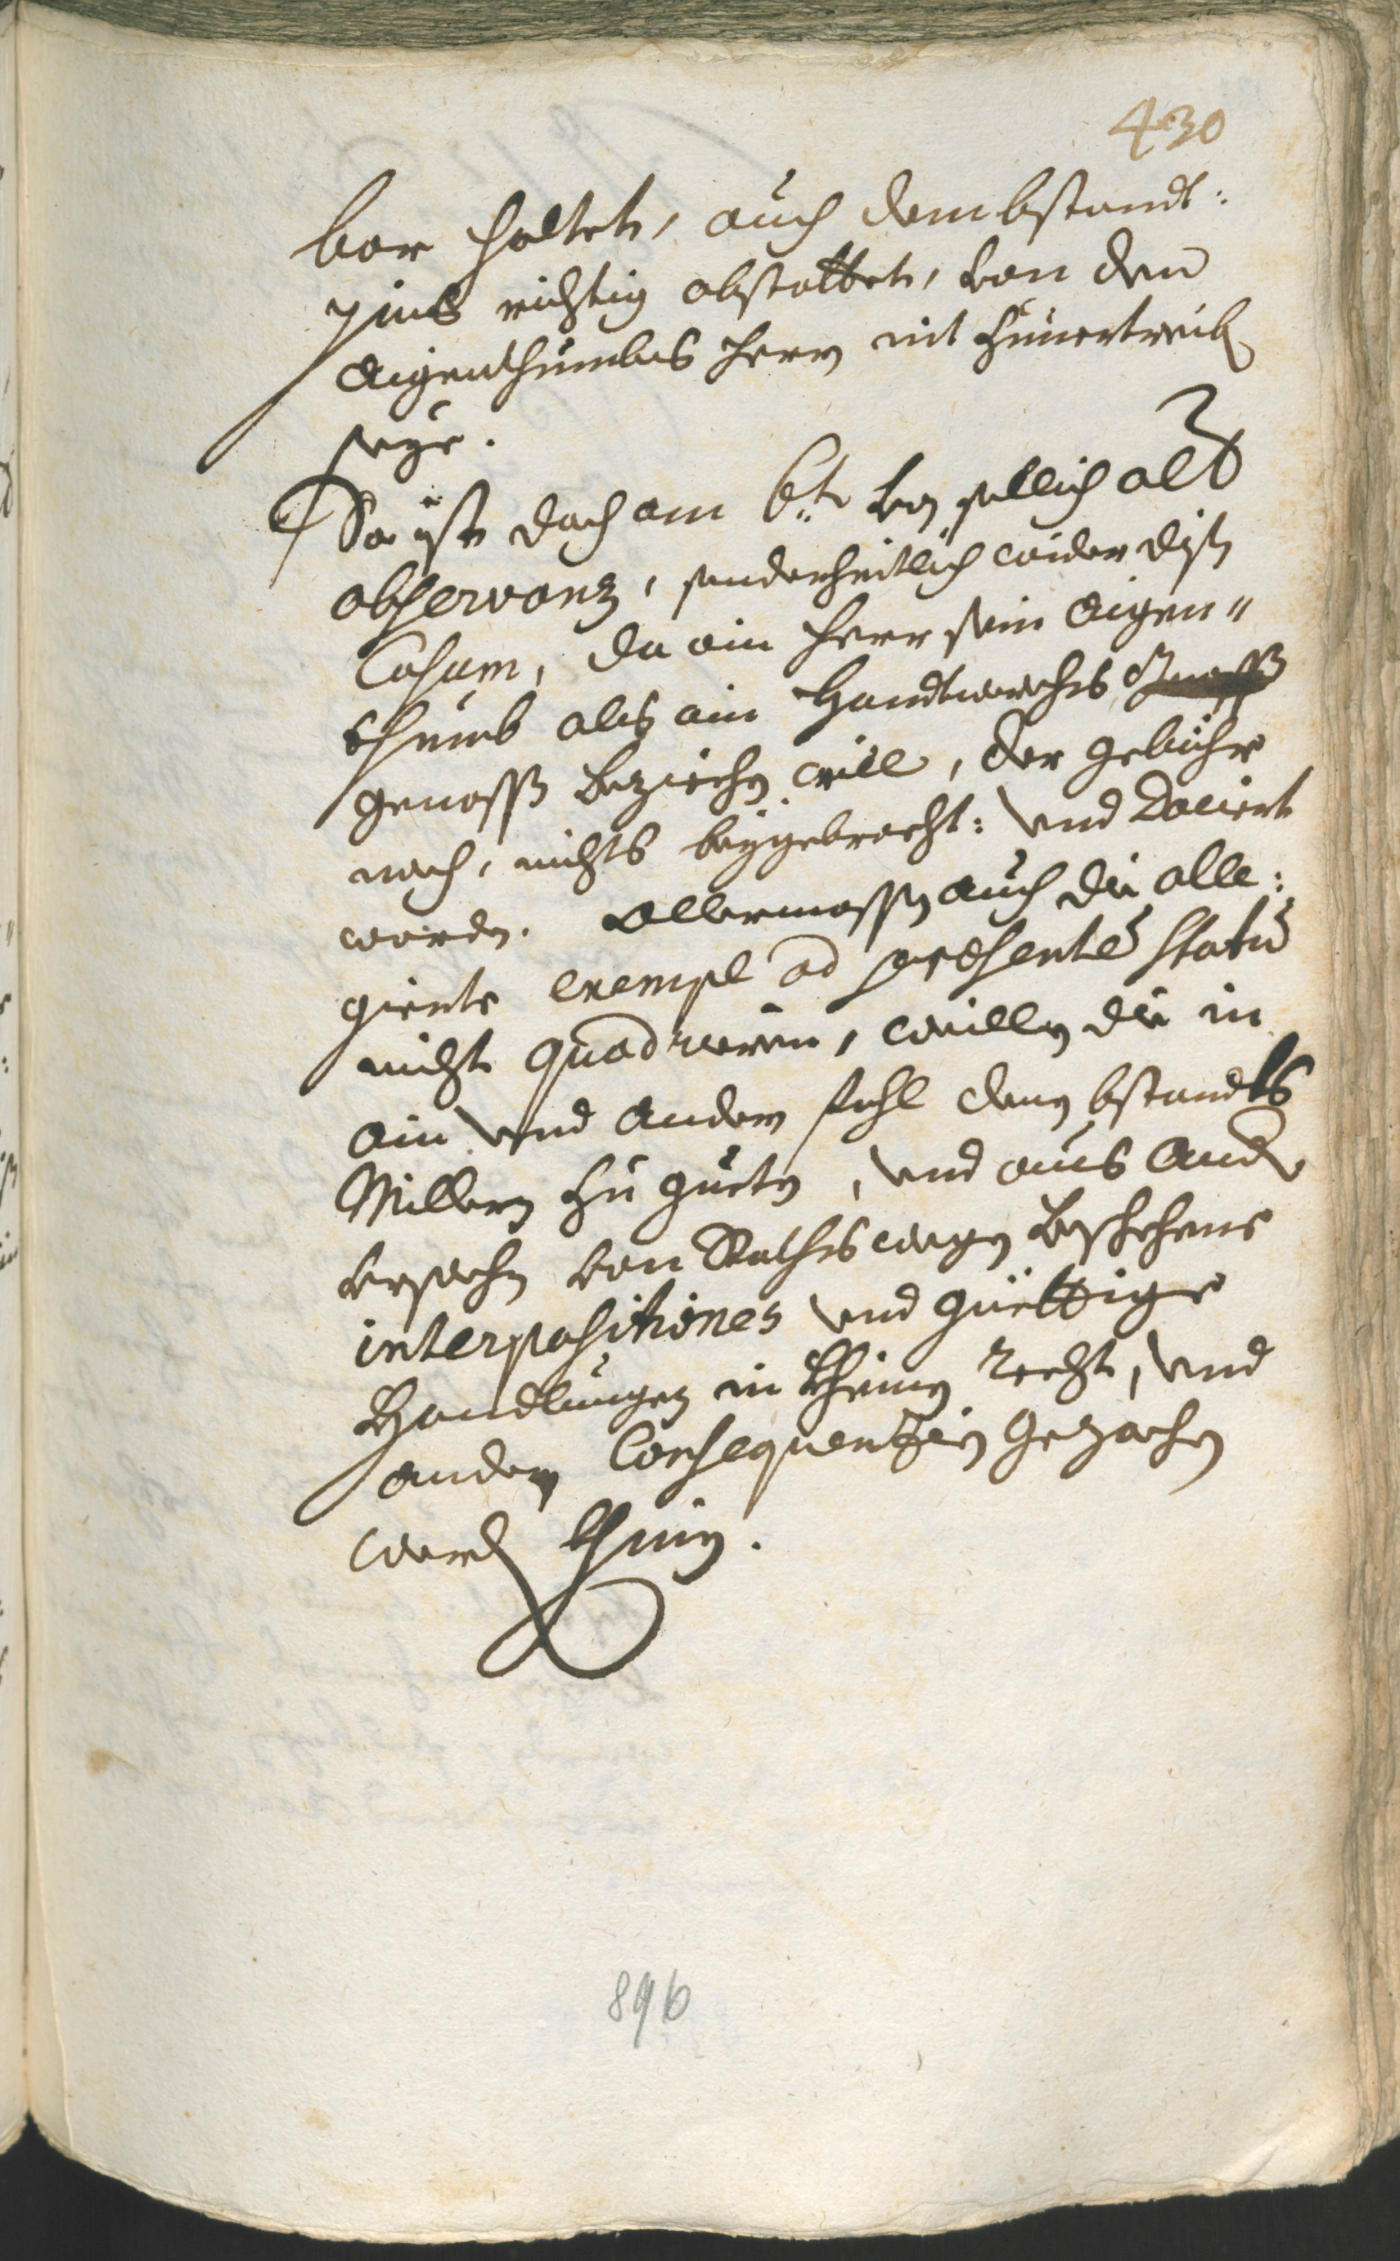 430
bar haltet, auch den bstandt:
zins richtig abstattet, von dem
Aigenthumbs Herrn nit hinzetreib
seye.
So ist doch am 6.t
observanz, sonderheitlich wider disn
Casum, da ein Herr sein Aigen"
thumb als ein Handtwerchs
genoss beziechn will, der gebühr
nach, nichts beygebracht: und dociert
wordn. Allermassn auch die alle:
gierte exempl ad præsente statu
nicht quadrieren, weilln die in
ain und andern fahl denen bstandts
Millern zu guetn, und aus andr
ursachn von Raths wegn beschehene
interpositiones und güettige
Handlungen in kheinen Recht, und
andern Consequentien gezochn
werdn khinn.
896